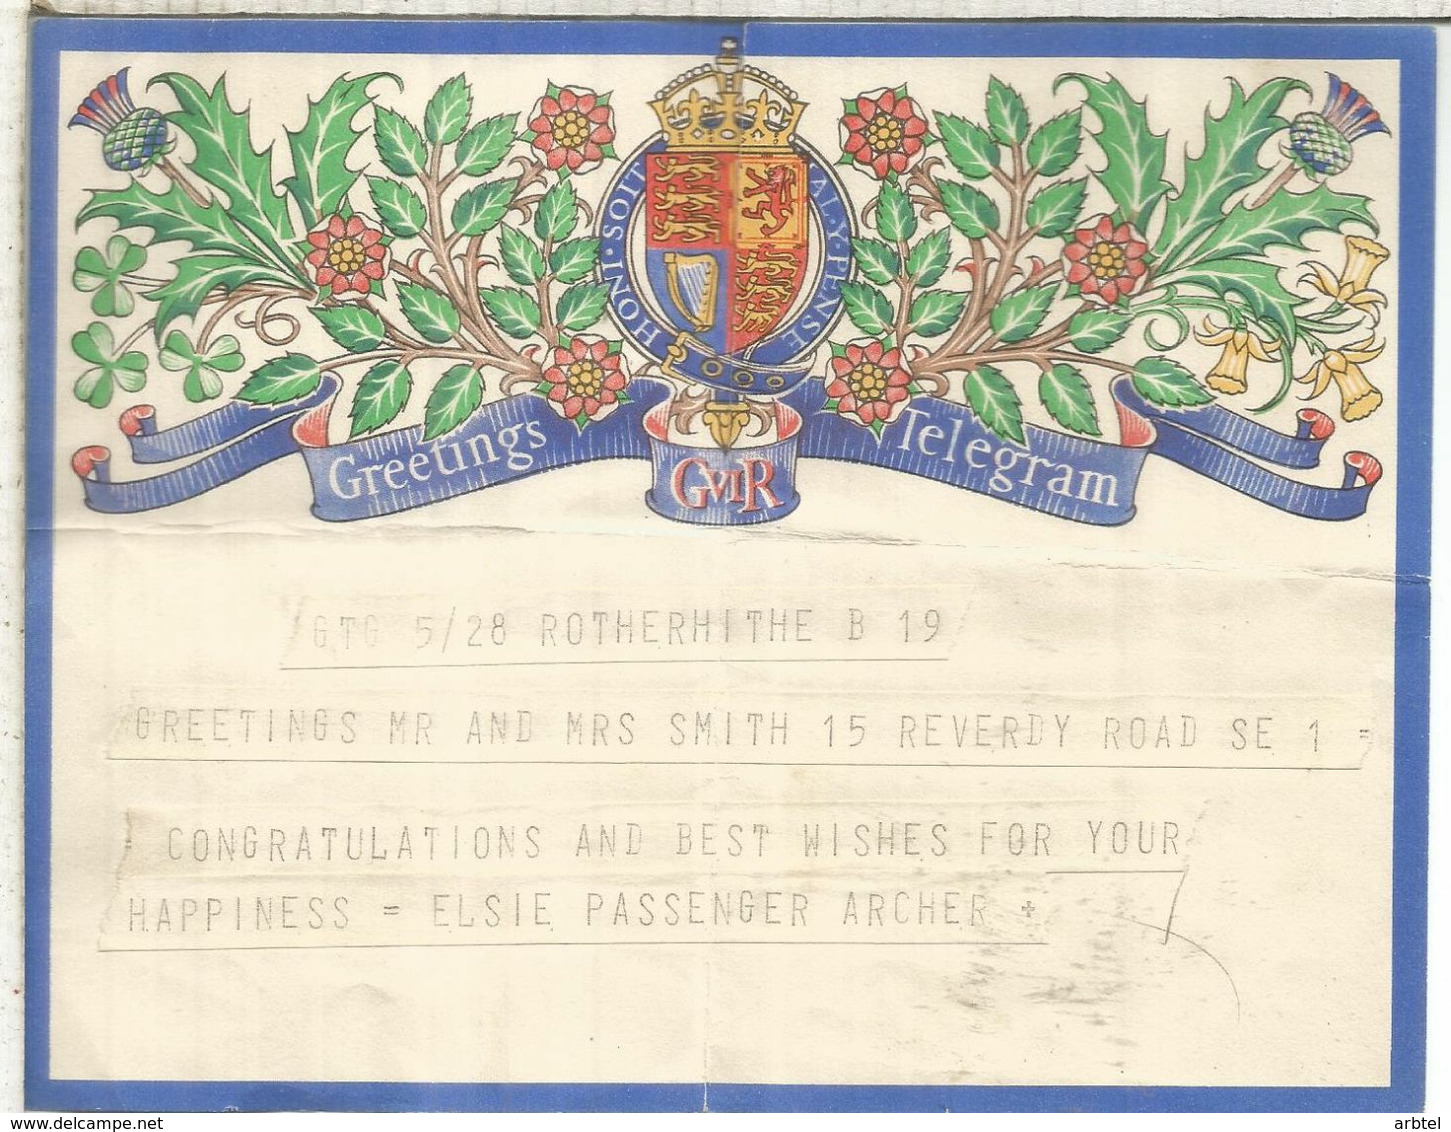 HONI · SOIT
AL · Y · PENSE
Greetings
GVIR
Telegram
GTG 5/28 ROTHERHITHE B 19
GREETINGS MR AND MRS SMITH 15 REVERDY ROAD SE 1 =
CONGRATULATIONS AND BEST WISHES FOR YOUR
HAPPINESS = ELSIE PASSENGER ARCHER +
www.delcampe.net
arbtel